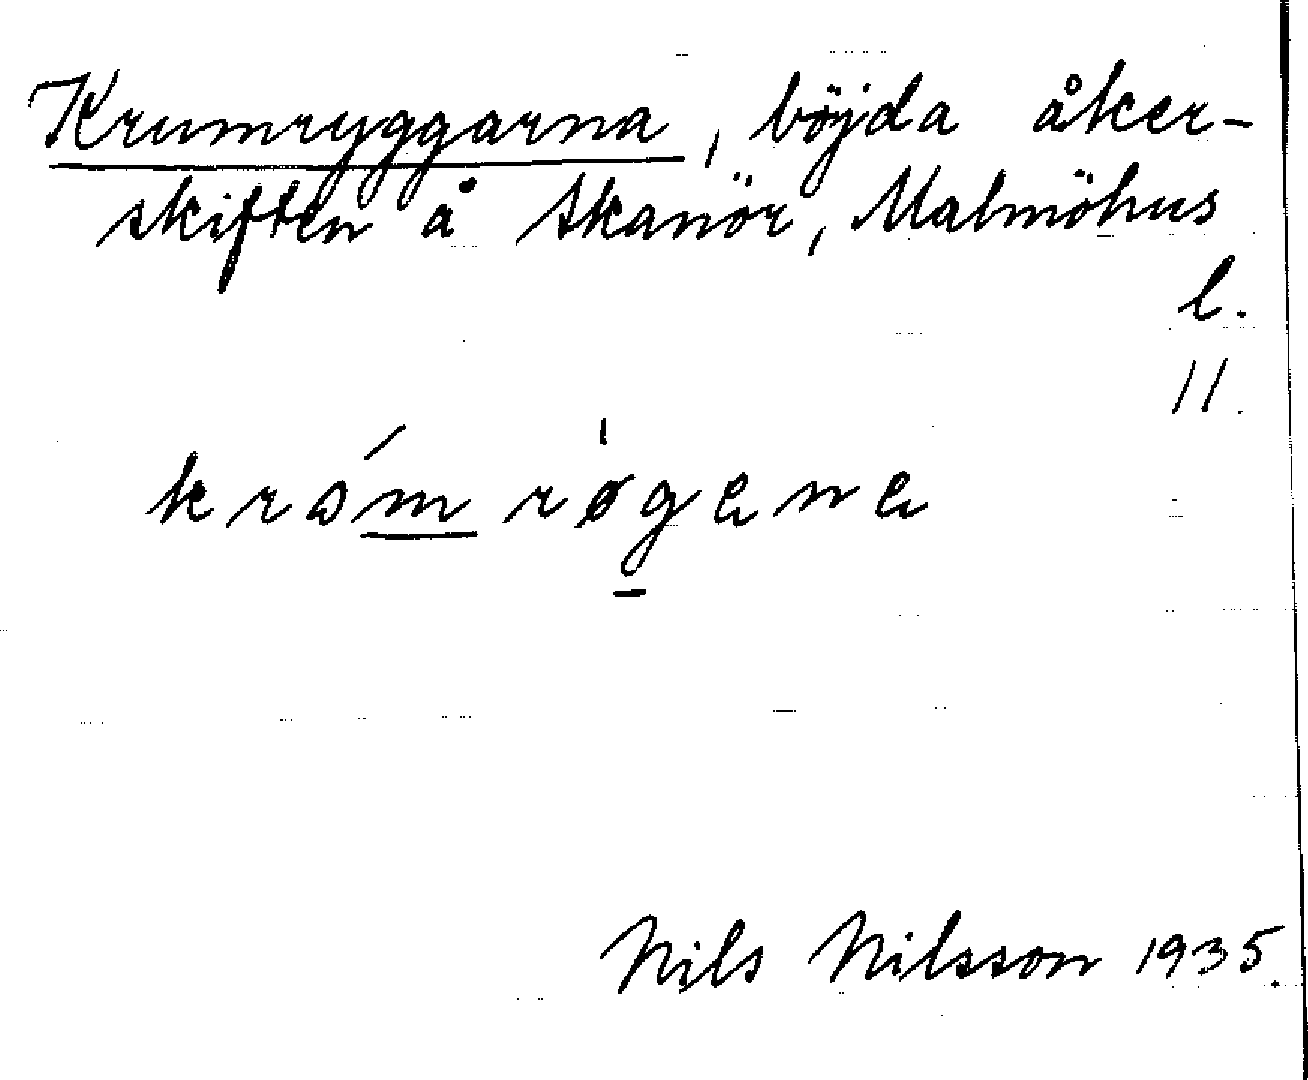 Krumryggarna, böjda åker-
skiften å Skanör, Malmöhus
l.
11.
krom røgana
Nils Nilsson 1935.